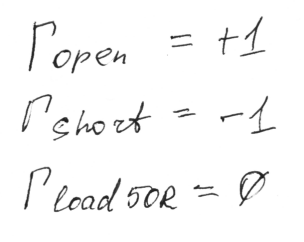 Γopen = +1
Γshort = -1
Γload 50R = Ø